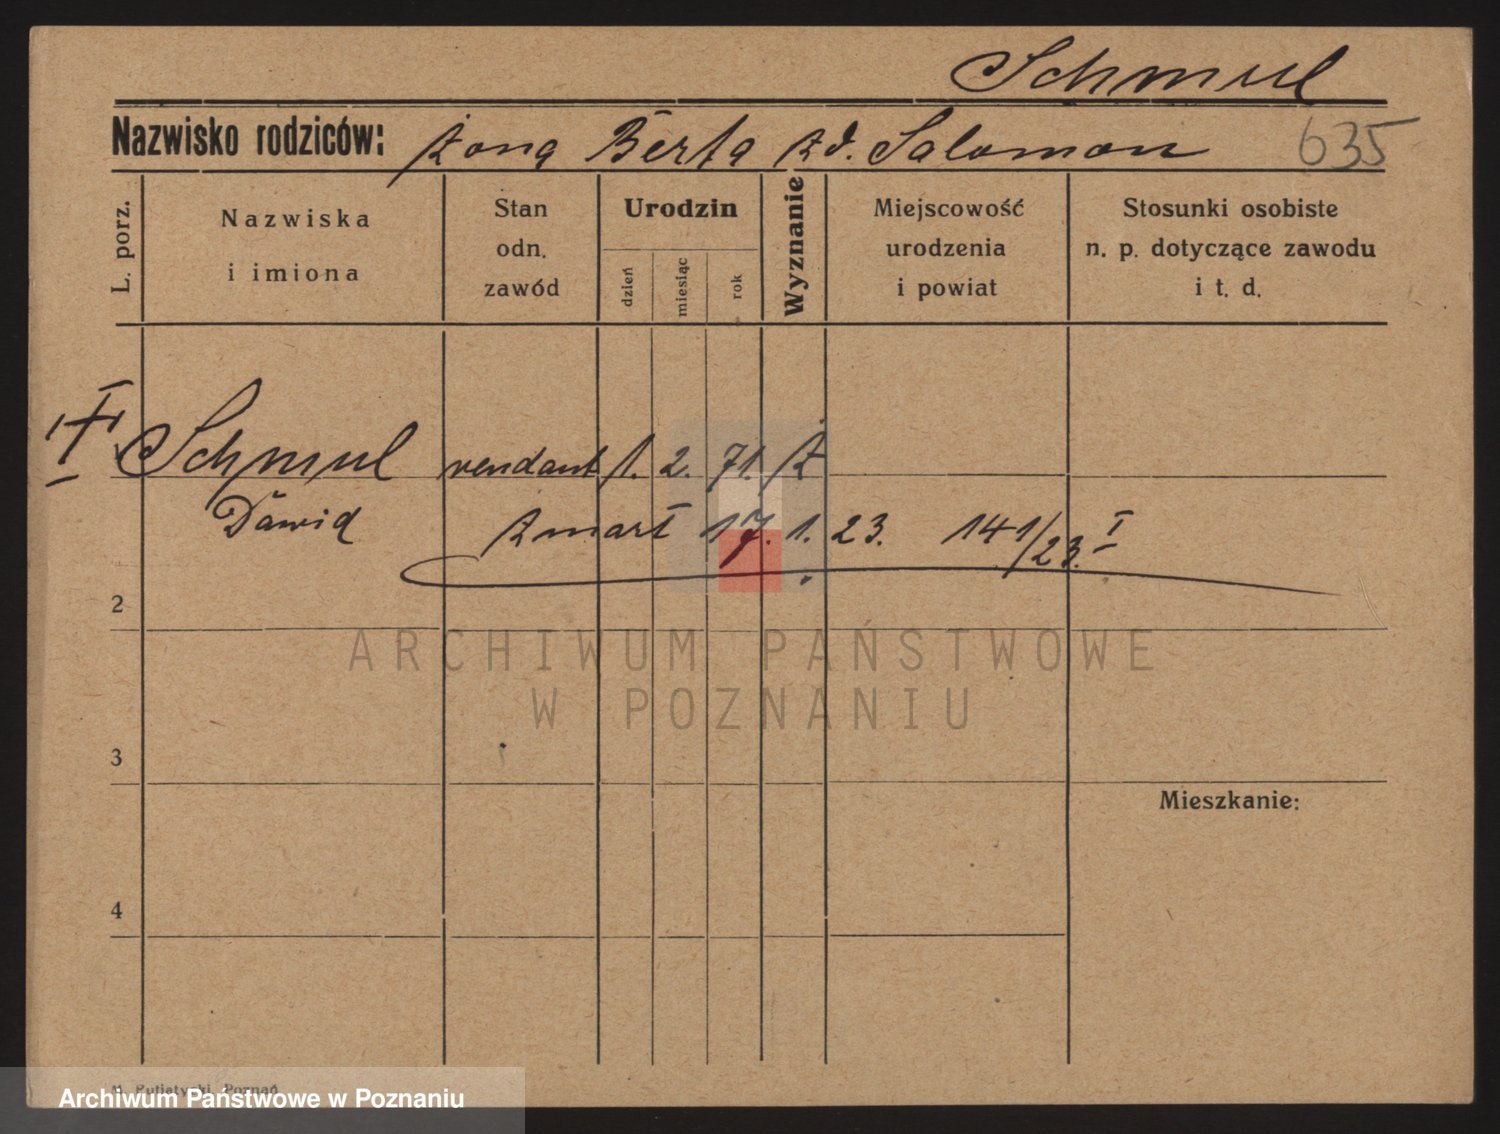 Schmul
Nazwisko rodziców: żona Berta zd. Salomon 635
L. porz.
Nazwiska
i imiona
Stan
odn.
zawód
Urodzin
dzień
miesiąc
rok
Wyznanie
Miejscowość
urodzenia
i powiat
Stosunki osobiste
n. p. dotyczące zawodu
i t. d.
Schmul rendant 1. 2. 71. ż
Dawid zmarł 17. 1. 23. 141/23. I
2
ARCHIWUM PAŃSTWOWE
W POZNANIU
3
Mieszkanie:
4
M. Putiatycki, Poznań
Archiwum Państwowe w Poznaniu